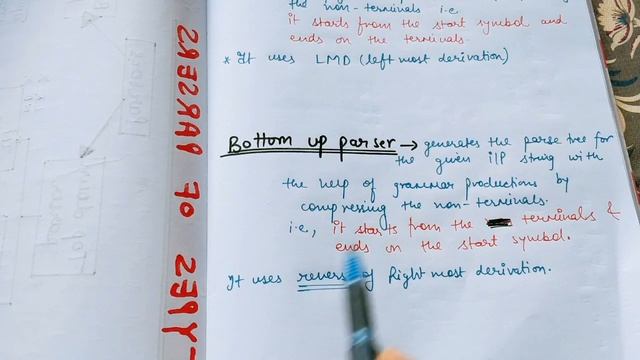 the non-terminals i.e
it starts from the start symbol and
ends on the terminals.
* It uses LMD (left most derivation)
Bottom up parser → generates the parse tree for
the given i/p string with
the help of grammar productions by
compressing the non-terminals.
i.e., it starts from the terminals &
ends on the start symbol.
It uses reverse of Right most derivation.
TYPES OF PARSERS